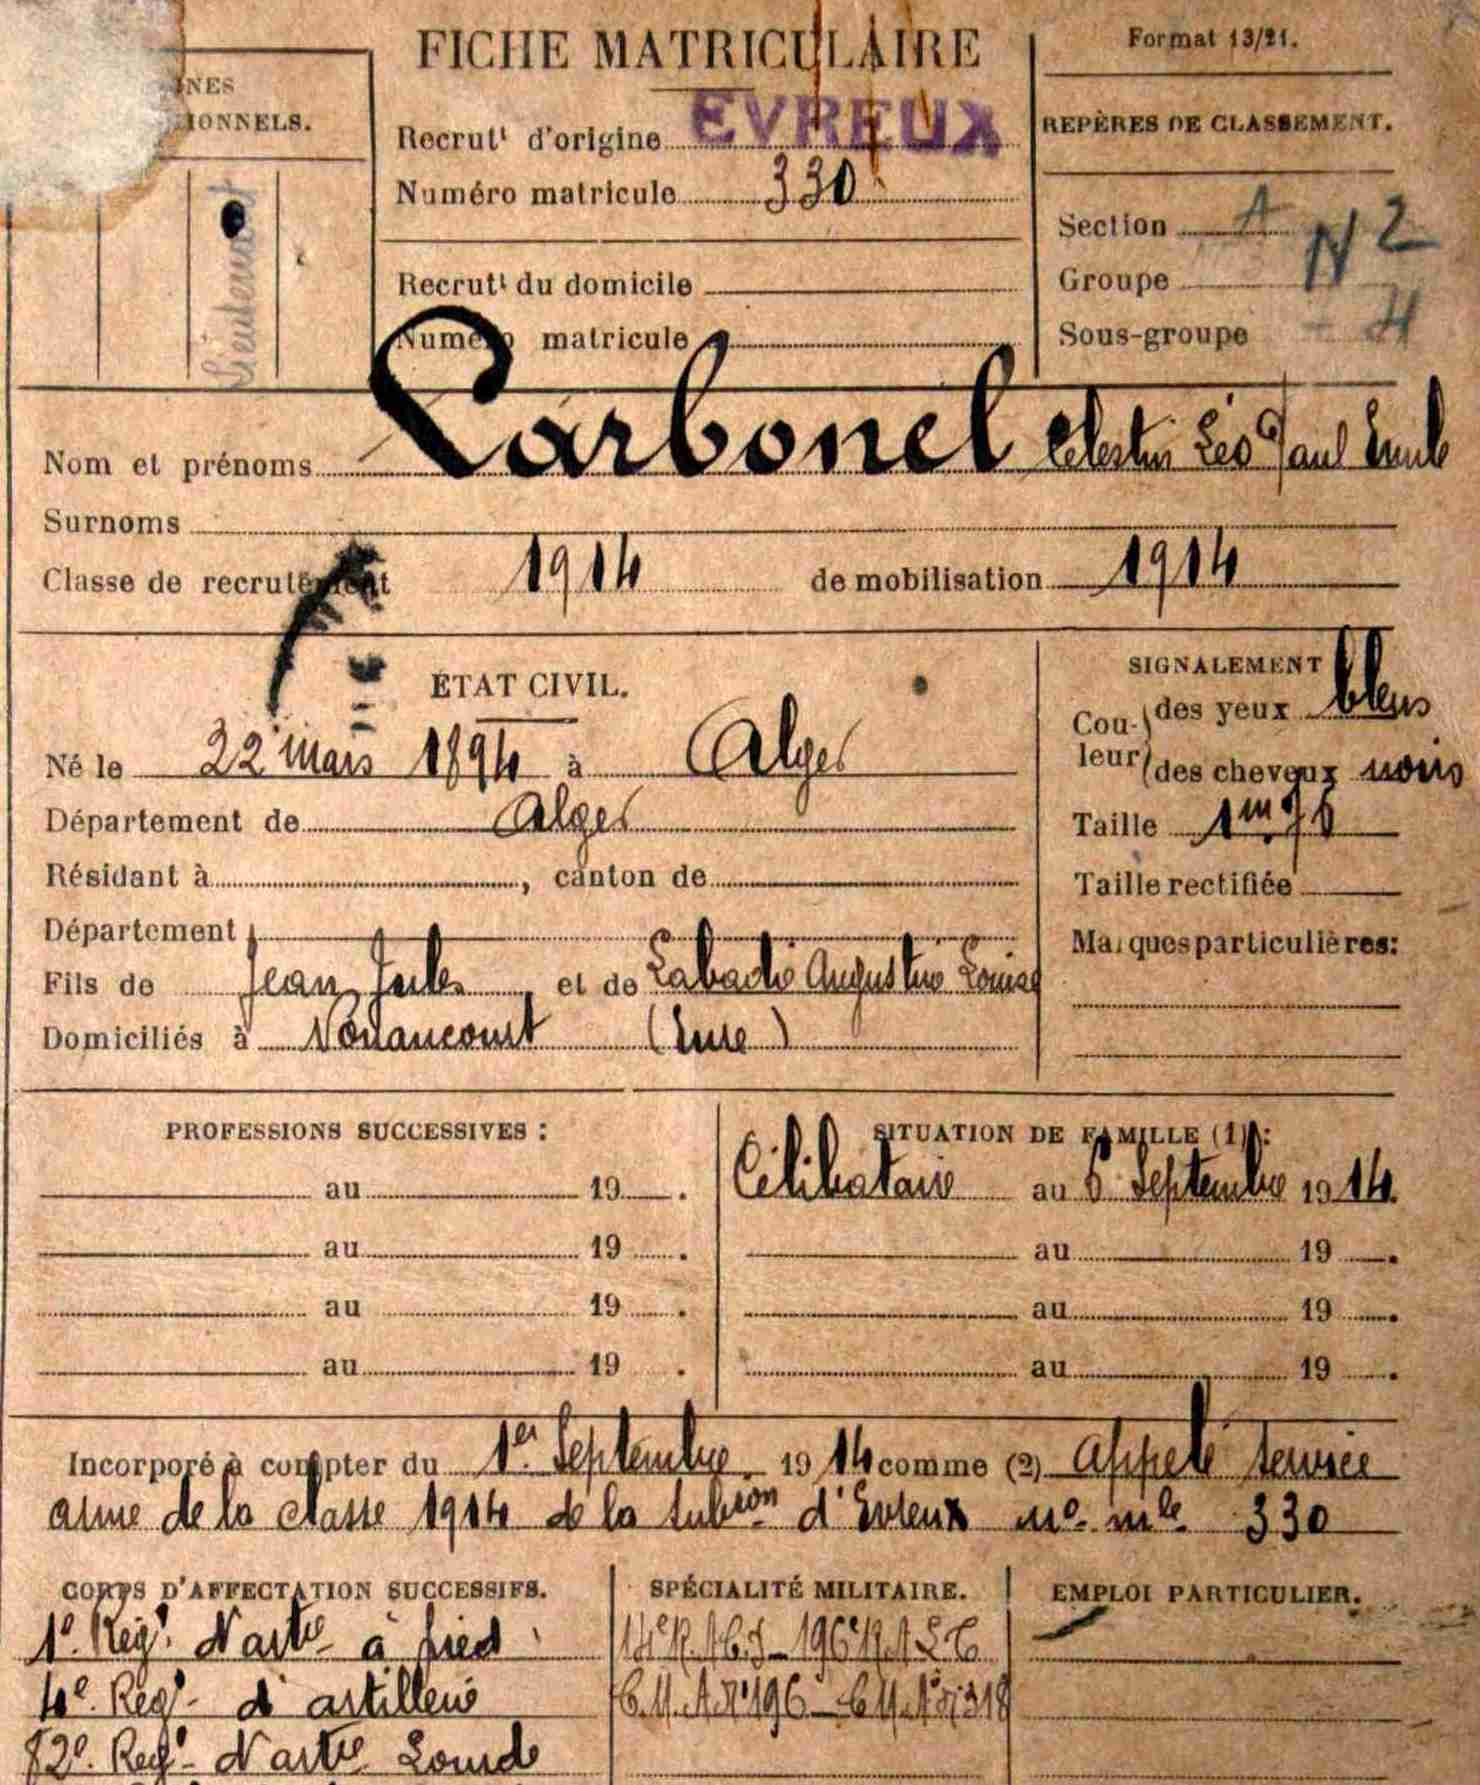 FICHE MATRICULAIRE
Format 13/21.
NES
IONNELS.
Recrutt d'origine EVREUX
Numéro matricule 330
REPÈRES DE CLASSEMENT.
Lieutenant
Section A
N 2
Recrutt du domicile
Groupe
Numéro matricule
Sous-groupe 4
Nom et prénoms Carbonel Célestin Léo Paul Emile
Surnoms
Classe de recrutement 1914 de mobilisation 1914
ÉTAT CIVIL.
Né le 22 mars 1894 à Alger
Département de Alger
Résidant à , canton de
Département
Fils de Jean Jules et de Labadie Augustine Louise
Domiciliés à Nonancourt (Eure)
SIGNALEMENT
Cou- des yeux bleus
leur des cheveux noirs
Taille 1m76
Taille rectifiée
Marques particulières:
PROFESSIONS SUCCESSIVES :
au 19 .
au 19 .
au 19 .
au 19 .
SITUATION DE FAMILLE (1) :
Célibataire au 6 Septembre 1914.
au 19 .
au 19 .
au 19 .
Incorporé à compter du 1er Septembre 1914 comme (2) appelé service
armé de la classe 1914 de la subon d'Evreux no mle 330
CORPS D'AFFECTATION SUCCESSIFS.
1e Regt d'artie à pied
4e Regt d'artillerie
82e Regt d'artie Lourde
SPÉCIALITÉ MILITAIRE.
196e R.A.L.
196 318
EMPLOI PARTICULIER.